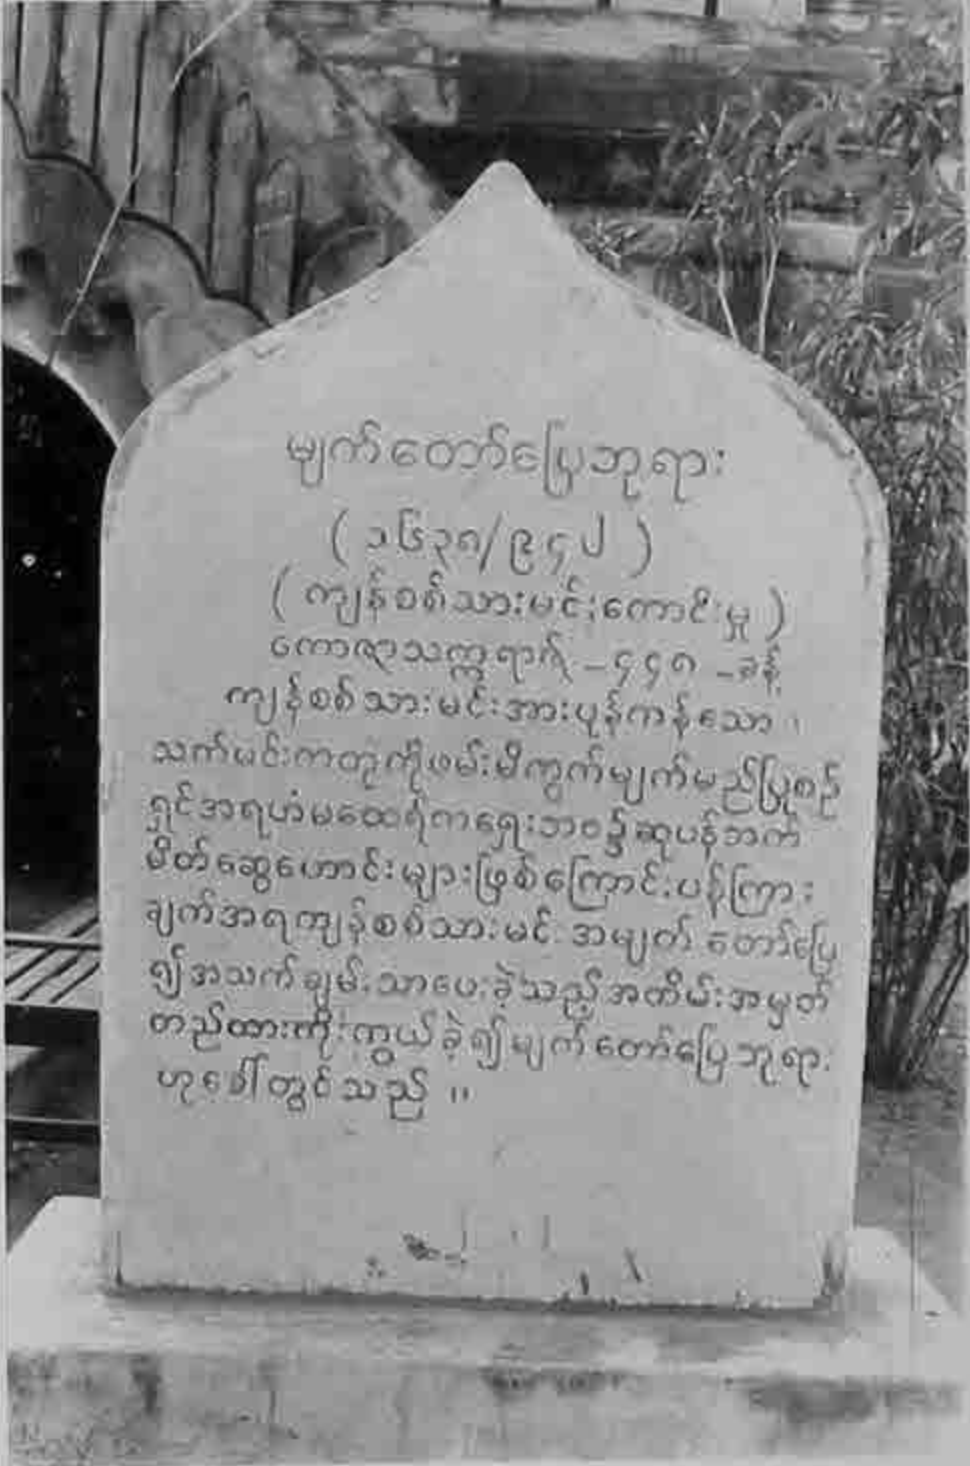 မျက်တော်ပြေဘုရား
( ၁၆၃၈/၉၄၂ )
( ကျန်စစ်သားမင်းကောင်းမှု )
ကောဇာသက္ကရာဇ် - ၄၄၈ - ခုန့်
ကျန်စစ်သားမင်းအားပုန်ကန်သော
သက်မင်းကတုံကိုဖမ်းမိကွက်မျက်မည်ပြုစဉ်
ရှင်အရဟံမထေရ်ကရှေးဘဝ၌ဆုပန်ဘက်
မိတ်ဆွေဟောင်းများဖြစ်ကြောင်းပန်ကြား
ချက်အရကျန်စစ်သားမင်း အမျက် တော်ပြေ
၍အသက်ချမ်းသာပေးခဲ့သည့်အထိမ်းအမှတ်
တည်ထားကိုးကွယ်ခဲ့၍မျက်တော်ပြေဘုရား
ဟုခေါ်တွင်သည် ။